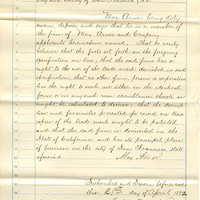 City and County of San Francisco } SS.
Max Auer being duly
sworn, deposes and says that he is a member of
the firm of Max Auer and Company
applicants hereinabove named. That he verily
believes that the facts set forth in the foregoing
specification are true, that the said firm has a
right to the use of the trade mark described in said
specification, that no other firm, person or corporation
has the right to such use either in an identical
form or in any such near resemblance thereto, as
might be calculated to deceive; that the descrip-
tion and facsimiles presented for record are true
copies of the trade mark sought to be protected,
and that the said firm is domiciled in the
State of California and has its principal place
of business in the city of San Francisco, State
aforesaid.
Max Auer
Subscribed and Sworn before me
this 21st day of April 1882